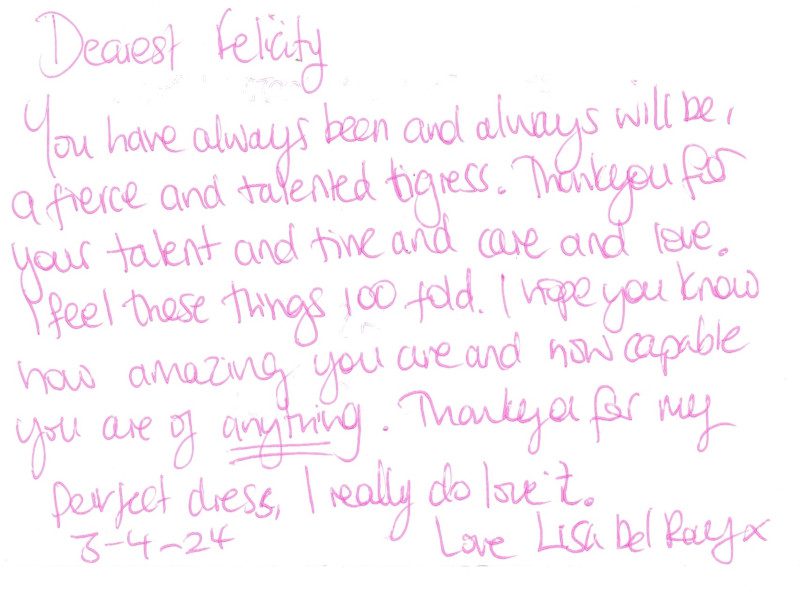 Dearest Felicity
You have always been and always will be,
a fierce and talented tigress. Thankyou for
your talent and time and care and love.
I feel these things 100 fold. I hope you know
how amazing you are and how capable
you are of anything. Thankyou for my
perfect dress, I really do love it.
3-4-24 Love Lisa Del Rey x